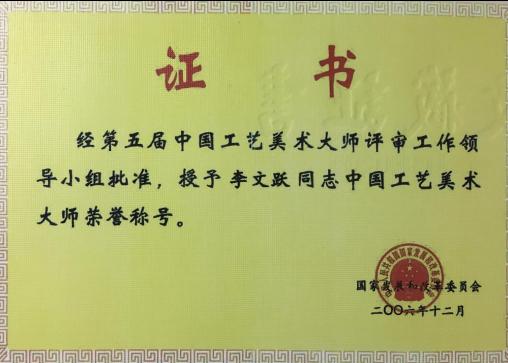 证 书
经第五届中国工艺美术大师评审工作领
导小组批准，授予李文跃同志中国工艺美术
大师荣誉称号。
国家发展和改革委员会
二〇〇六年十二月